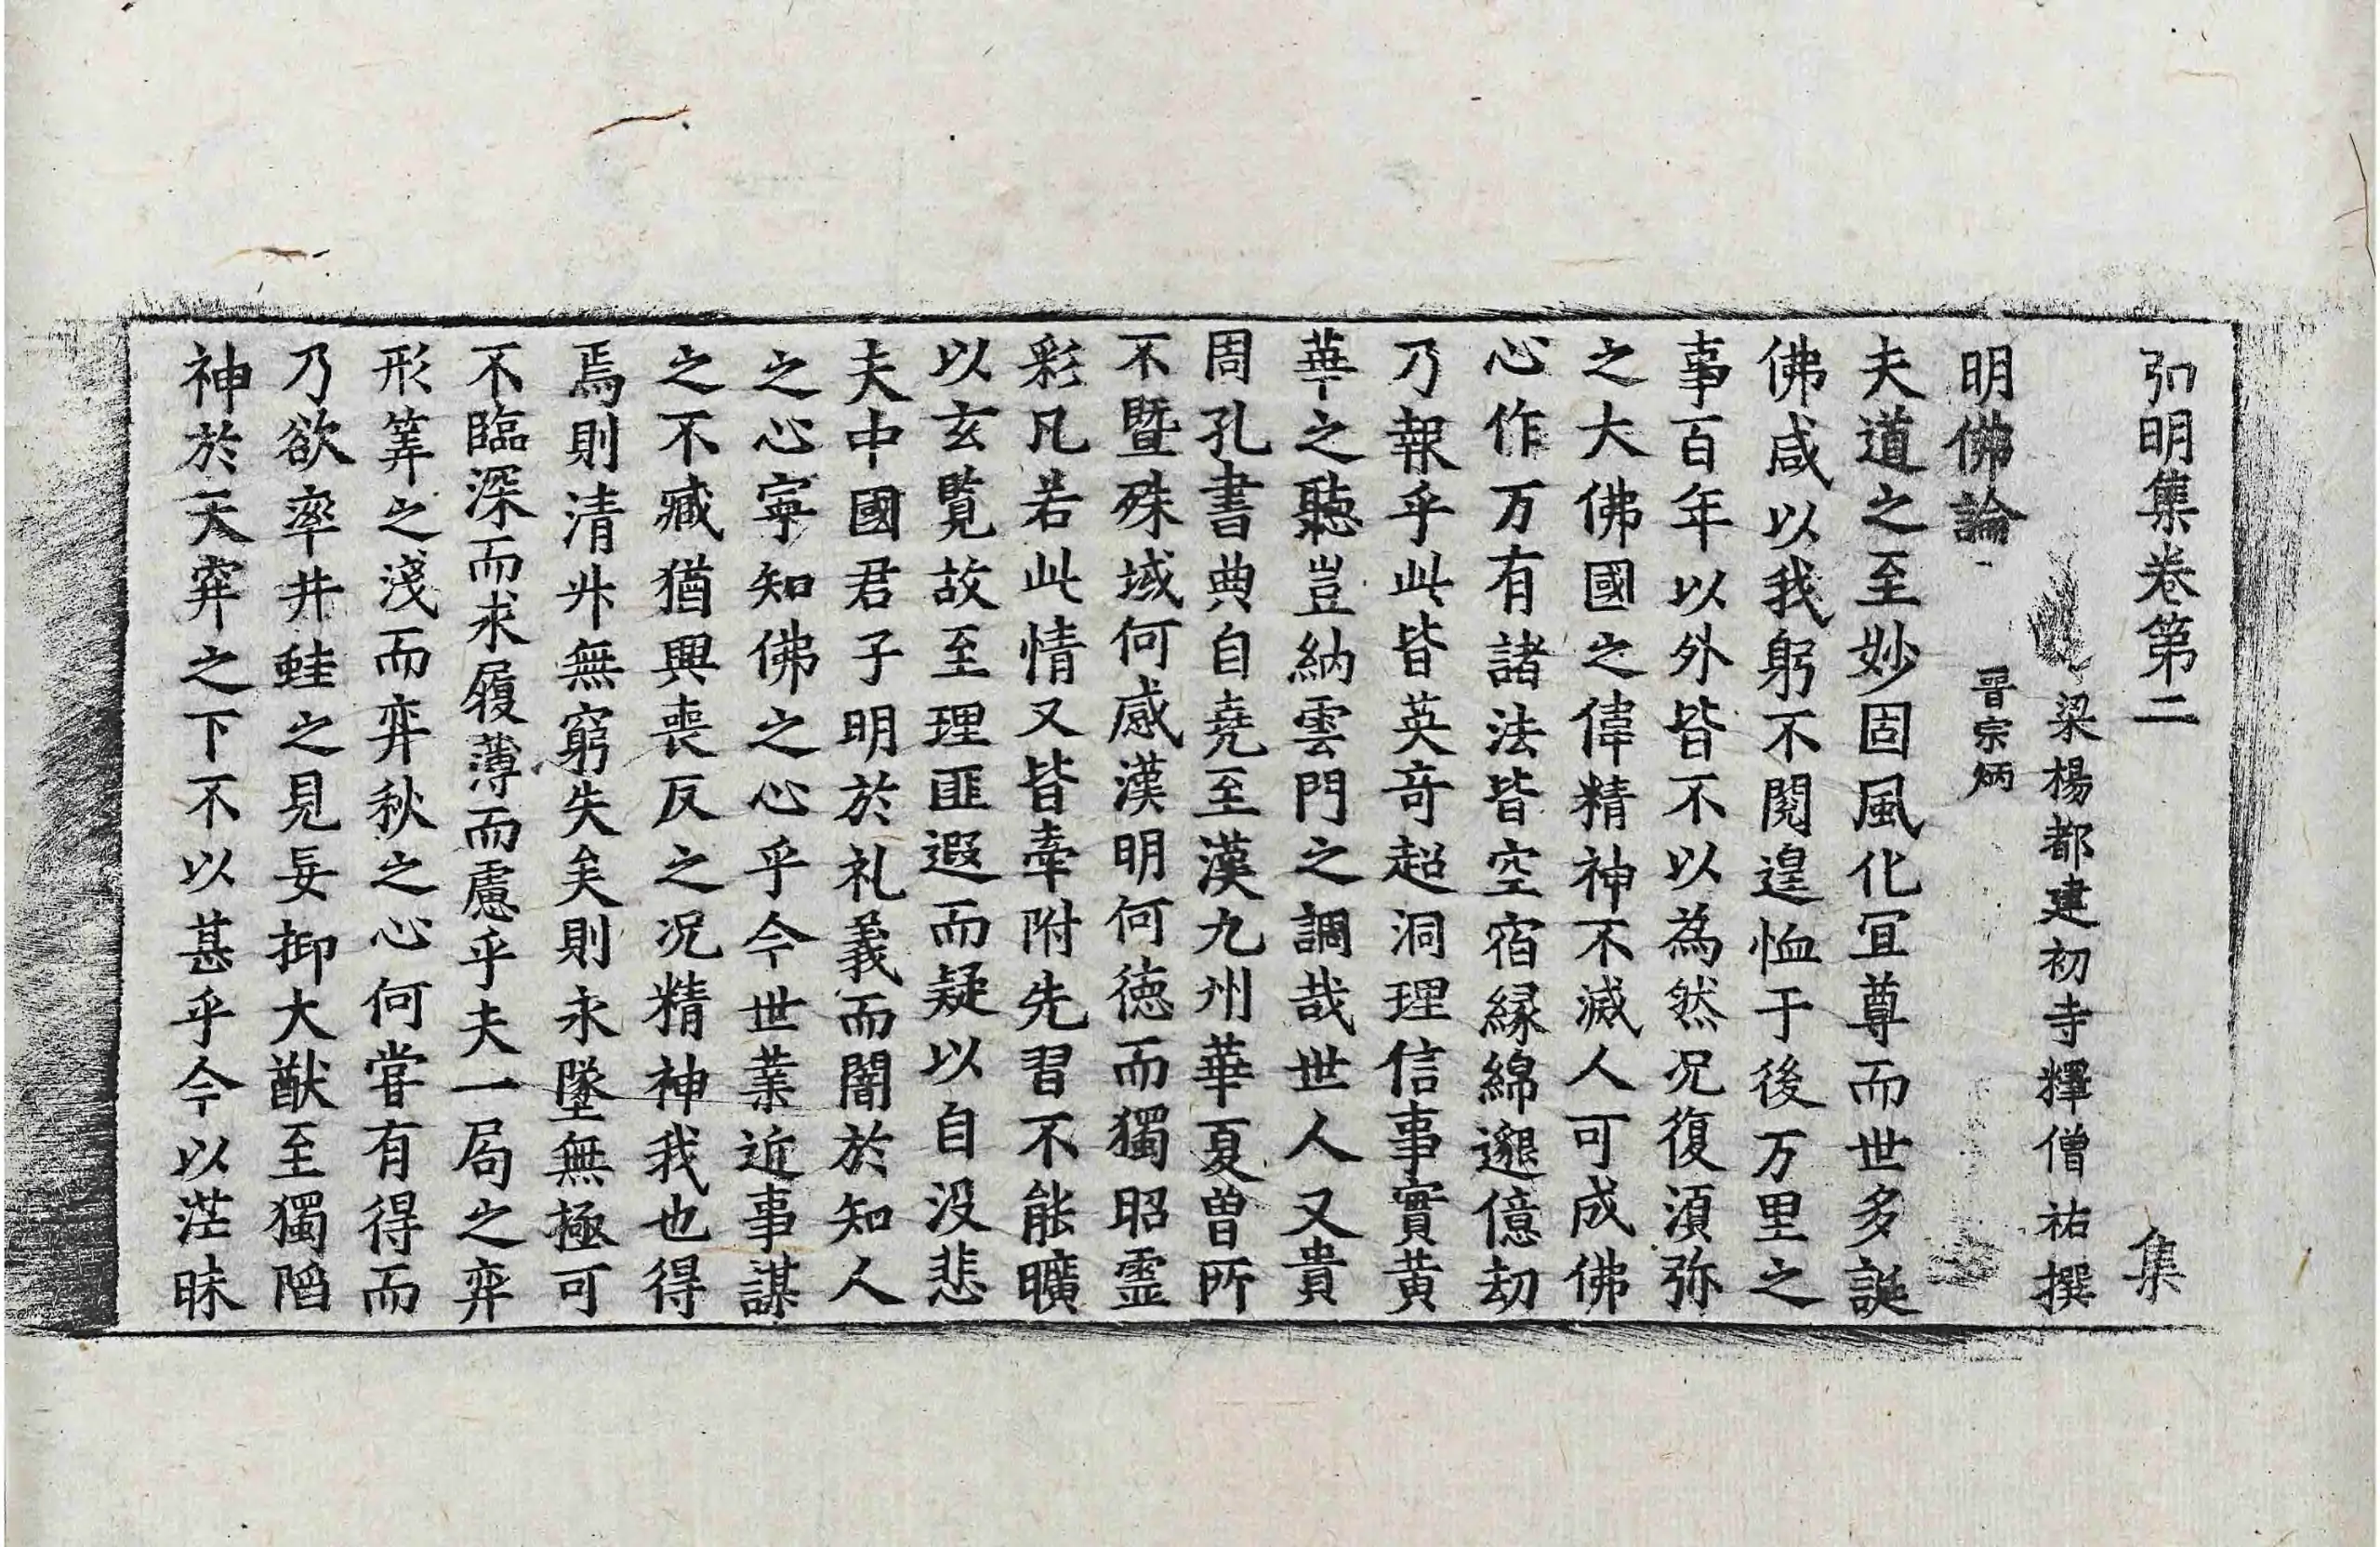 弘明集卷第二 集
梁楊都建初寺釋僧祐撰
明佛論 晉宗炳
夫道之至妙固風化冝尊而世多誕
佛咸以我躬不閱遑恤于後万里之
事百年以外皆不以為然况復湏弥
之大佛國之偉精神不滅人可成佛
心作万有諸法皆空宿縁綿邈億劫
乃報乎此皆英竒超洞理信事實黃
華之聽豈納雲門之調哉世人又貴
周孔書典自堯至漢九州華夏曽所
不曁殊域何感漢明何徳而獨昭霊
彩凡若此情又皆牽附先習不能曠
以玄覧故至理匪遐而疑以自没悲
夫中國君子明於礼義而闇於知人
之心寜知佛之心乎今世業近事謀
之不臧猶興喪反之况精神我也得
焉則清升無窮失矣則永墜無極可
不臨深而求履薄而慮乎夫一局之弈
形筭之淺而弈秋之心何甞有得而
乃欲率井蛙之見妄抑大猷至獨陷
神於天穽之下不以甚乎今以茫昧